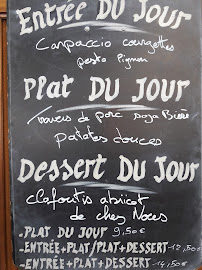 Entrée DU JOUR
Carpaccio courgettes
pesto Pignon
Plat DU JOUR
Travers de porc soja Bière
patates douces
Dessert DU JOUR
Clafoutis abricot
de chez Nous
-PLAT DU JOUR 9,50€
-ENTRÉE+PLAT/PLAT+DESSERT-12,50€
-ENTRÉE+PLAT+DESSERT-14,50€